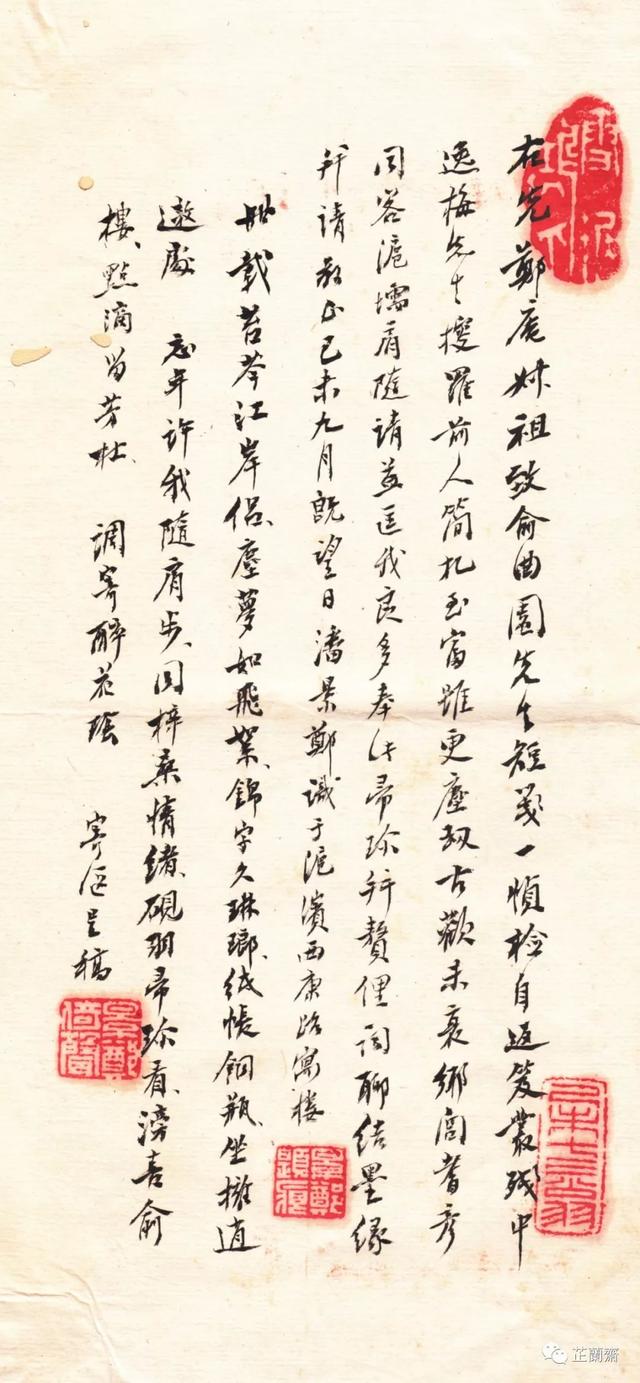 右先鄭庵妹祖致俞曲園先生短箋一幀檢自返笈叢殘中
逸梅先生搜羅前人簡札至富雖更塵劫古歡未衰鄉閭耆彥
同客滬壖肩隨請益匡我良多奉此帚珍并贅俚詞聊結墨緣
并請教正己未九月既望日潘景鄭識于滬濱西康路寓樓
載苔岑江岸侶塵夢如飛絮錦字久琳瑯紙帳銅瓶坐擁逍
遙處 忘年許我隨肩步同梓桑情緒硯羽帚珍看滂喜俞
樓點滴留芳杜 調寄醉花陰 寄漚呈稿
景鄭題襟
芷蘭齋